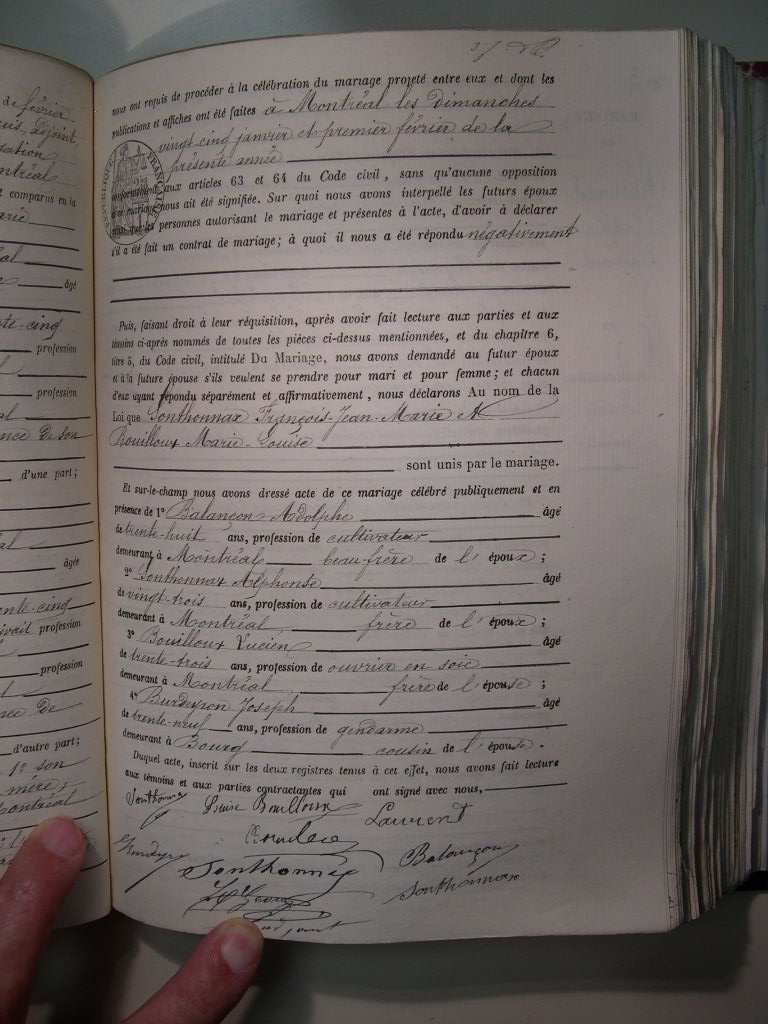 de février
Adjoint
Montréal
comparus en la
âgé
cinq
profession
profession
de son
d'une part;
âgée
trente-cinq
profession
profession
de
d'autre part;
1° son
mère;
Montréal
nous ont requis de procéder à la célébration du mariage projeté entre eux et dont les
publications et affiches ont été faites à Montréal les Dimanches
vingt cinq janvier et premier février de la
présente année
RÉPUBLIQUE FRANÇAISE
conformément aux articles 63 et 64 du Code civil, sans qu'aucune opposition
au mariage nous ait été signifiée. Sur quoi nous avons interpellé les futurs époux
ainsi que les personnes autorisant le mariage et présentes à l'acte, d'avoir à déclarer
s'il a été fait un contrat de mariage; à quoi il nous a été répondu négativement
Puis, faisant droit à leur réquisition, après avoir fait lecture aux parties et aux
témoins ci-après nommés de toutes les pièces ci-dessus mentionnées, et du chapitre 6,
titre 5, du Code civil, intitulé Du Mariage, nous avons demandé au futur époux
et à la future épouse s'ils veulent se prendre pour mari et pour femme; et chacun
d'eux ayant répondu séparément et affirmativement, nous déclarons Au nom de la
Loi que Sonthonnax François-Jean-Marie et
Bouilloux Marie-Louise
sont unis par le mariage.
Et sur-le-champ nous avons dressé acte de ce mariage célébré publiquement et en
présence de 1° Balançon Adolphe âgé
de trente-huit ans, profession de cultivateur
demeurant à Montréal beau-frère de l'époux;
2° Sonthonnax Alphonse âgé
de vingt-trois ans, profession de cultivateur
demeurant à Montréal frère de l'époux;
3° Bouilloux Lucien âgé
de trente-trois ans, profession de ouvrier en soie
demeurant à Montréal frère de l'épouse;
4° Burdeyron Joseph âgé
de trente-neuf ans, profession de gendarme
demeurant à Bourg cousin de l'épouse.
Duquel acte, inscrit sur les deux registres tenus à cet effet, nous avons fait lecture
aux témoins et aux parties contractantes qui ont signé avec nous,
Sonthonnax Louise Bouilloux Laurent
Sonthonnax Balançon
Sonthonnax
adjoint